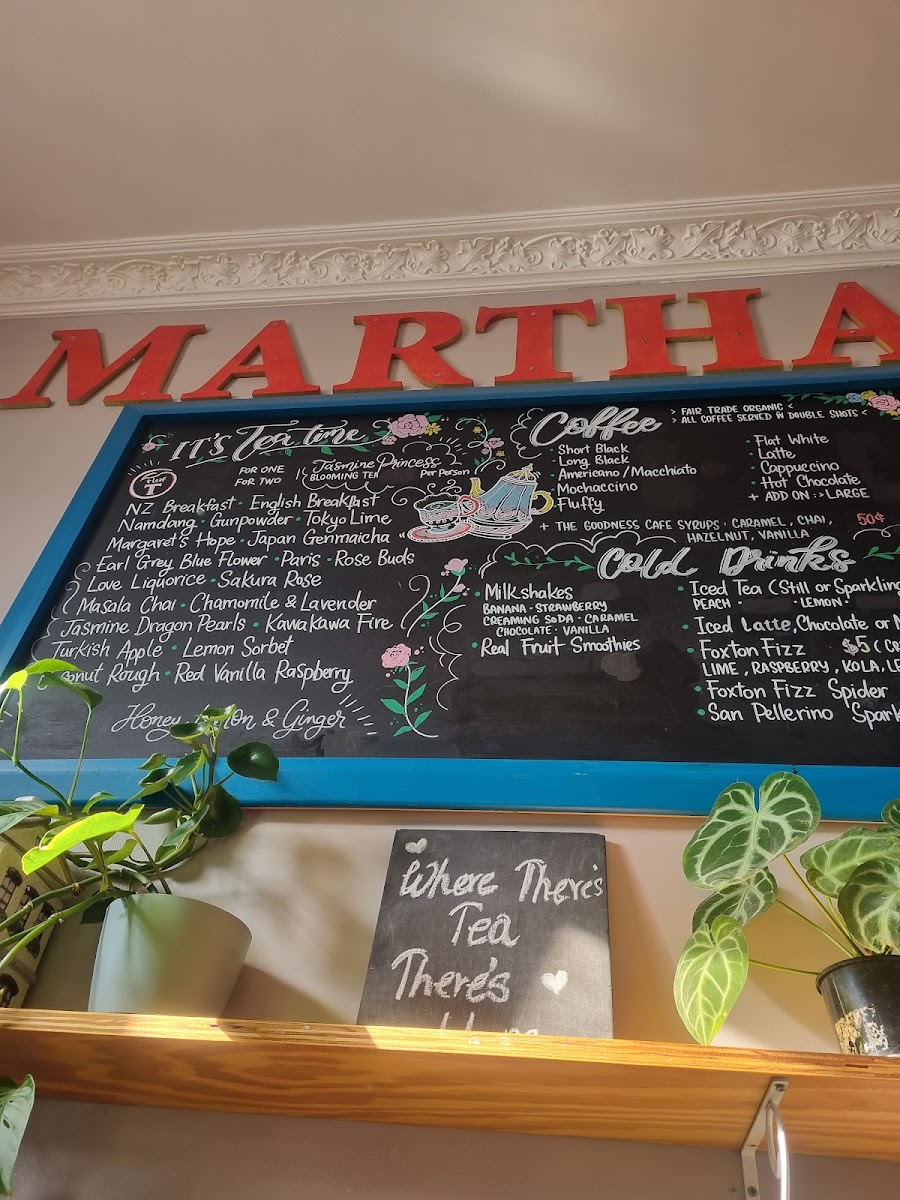 MARTHA
IT'S Tea time
T
FOR ONE
FOR TWO
Jasmine Princess
BLOOMING TEA
Per Person
NZ Breakfast · English Breakfast
Namdang · Gunpowder · Tokyo Lime
Margaret's Hope · Japan Genmaicha
Earl Grey Blue Flower · Paris · Rose Buds
Love Liquorice · Sakura Rose
Masala Chai · Chamomile & Lavender
Jasmine Dragon Pearls · Kawakawa Fire
Turkish Apple · Lemon Sorbet
Rough · Red Vanilla Raspberry
Honey & Ginger
Coffee
> FAIR TRADE ORGANIC <
> ALL COFFEE SERVED IN DOUBLE SHOTS <
· Short Black
· Long Black
· Americano / Macchiato
· Mochaccino
· Fluffy
· Flat White
· Latte
· Cappuccino
· Hot Chocolate
+ ADD ON :> LARGE
+ THE GOODNESS CAFE SYRUPS · CARAMEL, CHAI, 50¢
HAZELNUT, VANILLA
Cold Drinks
· Milkshakes
BANANA · STRAWBERRY
CREAMING SODA · CARAMEL
CHOCOLATE · VANILLA
· Real Fruit Smoothies
· Iced Tea (Still or Sparkling
PEACH · LEMON ·
· Iced Latte, Chocolate or
· Foxton Fizz $5
LIME, RASPBERRY, KOLA,
· Foxton Fizz Spider
· San Pellerino
Where There's
Tea
There's